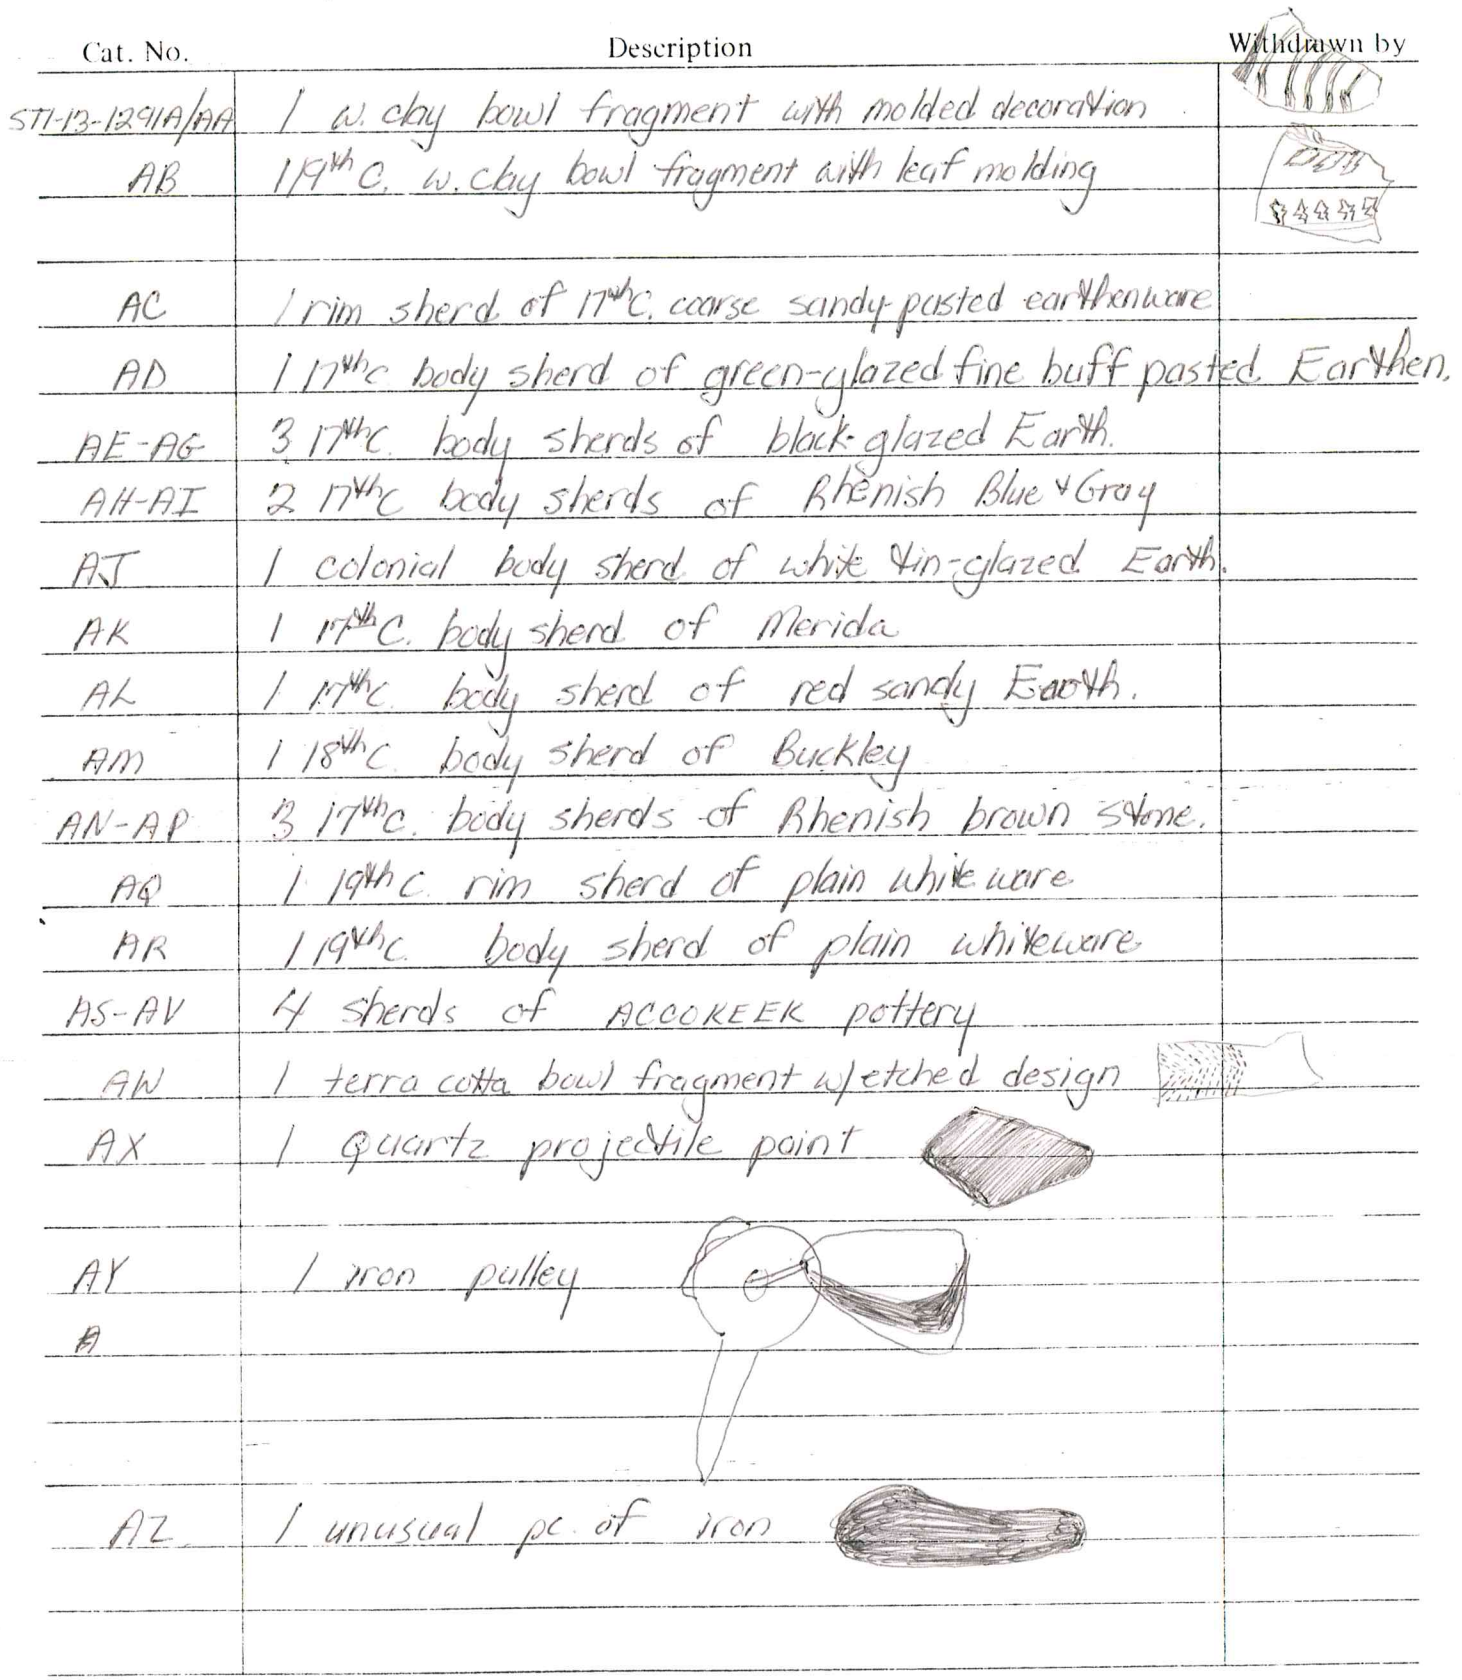 Cat. No. Description Withdrawn by
ST1-13-1291A/AA 1 w. clay bowl fragment with molded decoration
AB 1 19th C. w. clay bowl fragment with leaf molding
AC 1 rim sherd of 17th C. coarse sandy-pasted earthenware
AD 1 17th C body sherd of green-glazed fine buff pasted Earthen.
AE-AG 3 17th C. body sherds of black-glazed Earth.
AH-AI 2 17th C body sherds of Rhenish Blue & Gray
AJ 1 colonial body sherd of white tin-glazed Earth.
AK 1 17th C. body sherd of Merida
AL 1 17th C. body sherd of red sandy Earth.
AM 1 18th C. body sherd of Buckley
AN-AP 3 17th C. body sherds of Rhenish brown stone.
AQ 1 19th C. rim sherd of plain whiteware
AR 1 19th C. body sherd of plain whiteware
AS-AV 4 sherds of ACCOKEEK pottery
AW 1 terra cotta bowl fragment w/etched design
AX 1 Quartz projectile point
AY 1 iron pulley
A
AZ 1 unusual pc. of iron